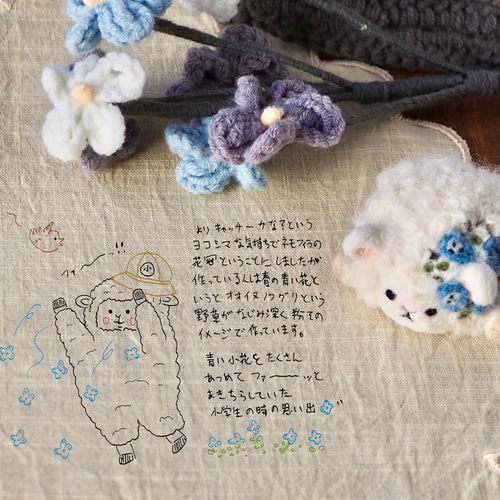 ファ〜〜!!
小
より キャッチーかな?という
ヨコシマな気持ちでネモフィラの
花冠ということにしましたが
作っている人は春の青い花と
いうと オオイヌノフグリという
野草がなじみ深く 捨ての
イメージで作っています。
青い小花をたくさん
あつめて ファ───ッと
まきちらしていた
小学生の時の思い出